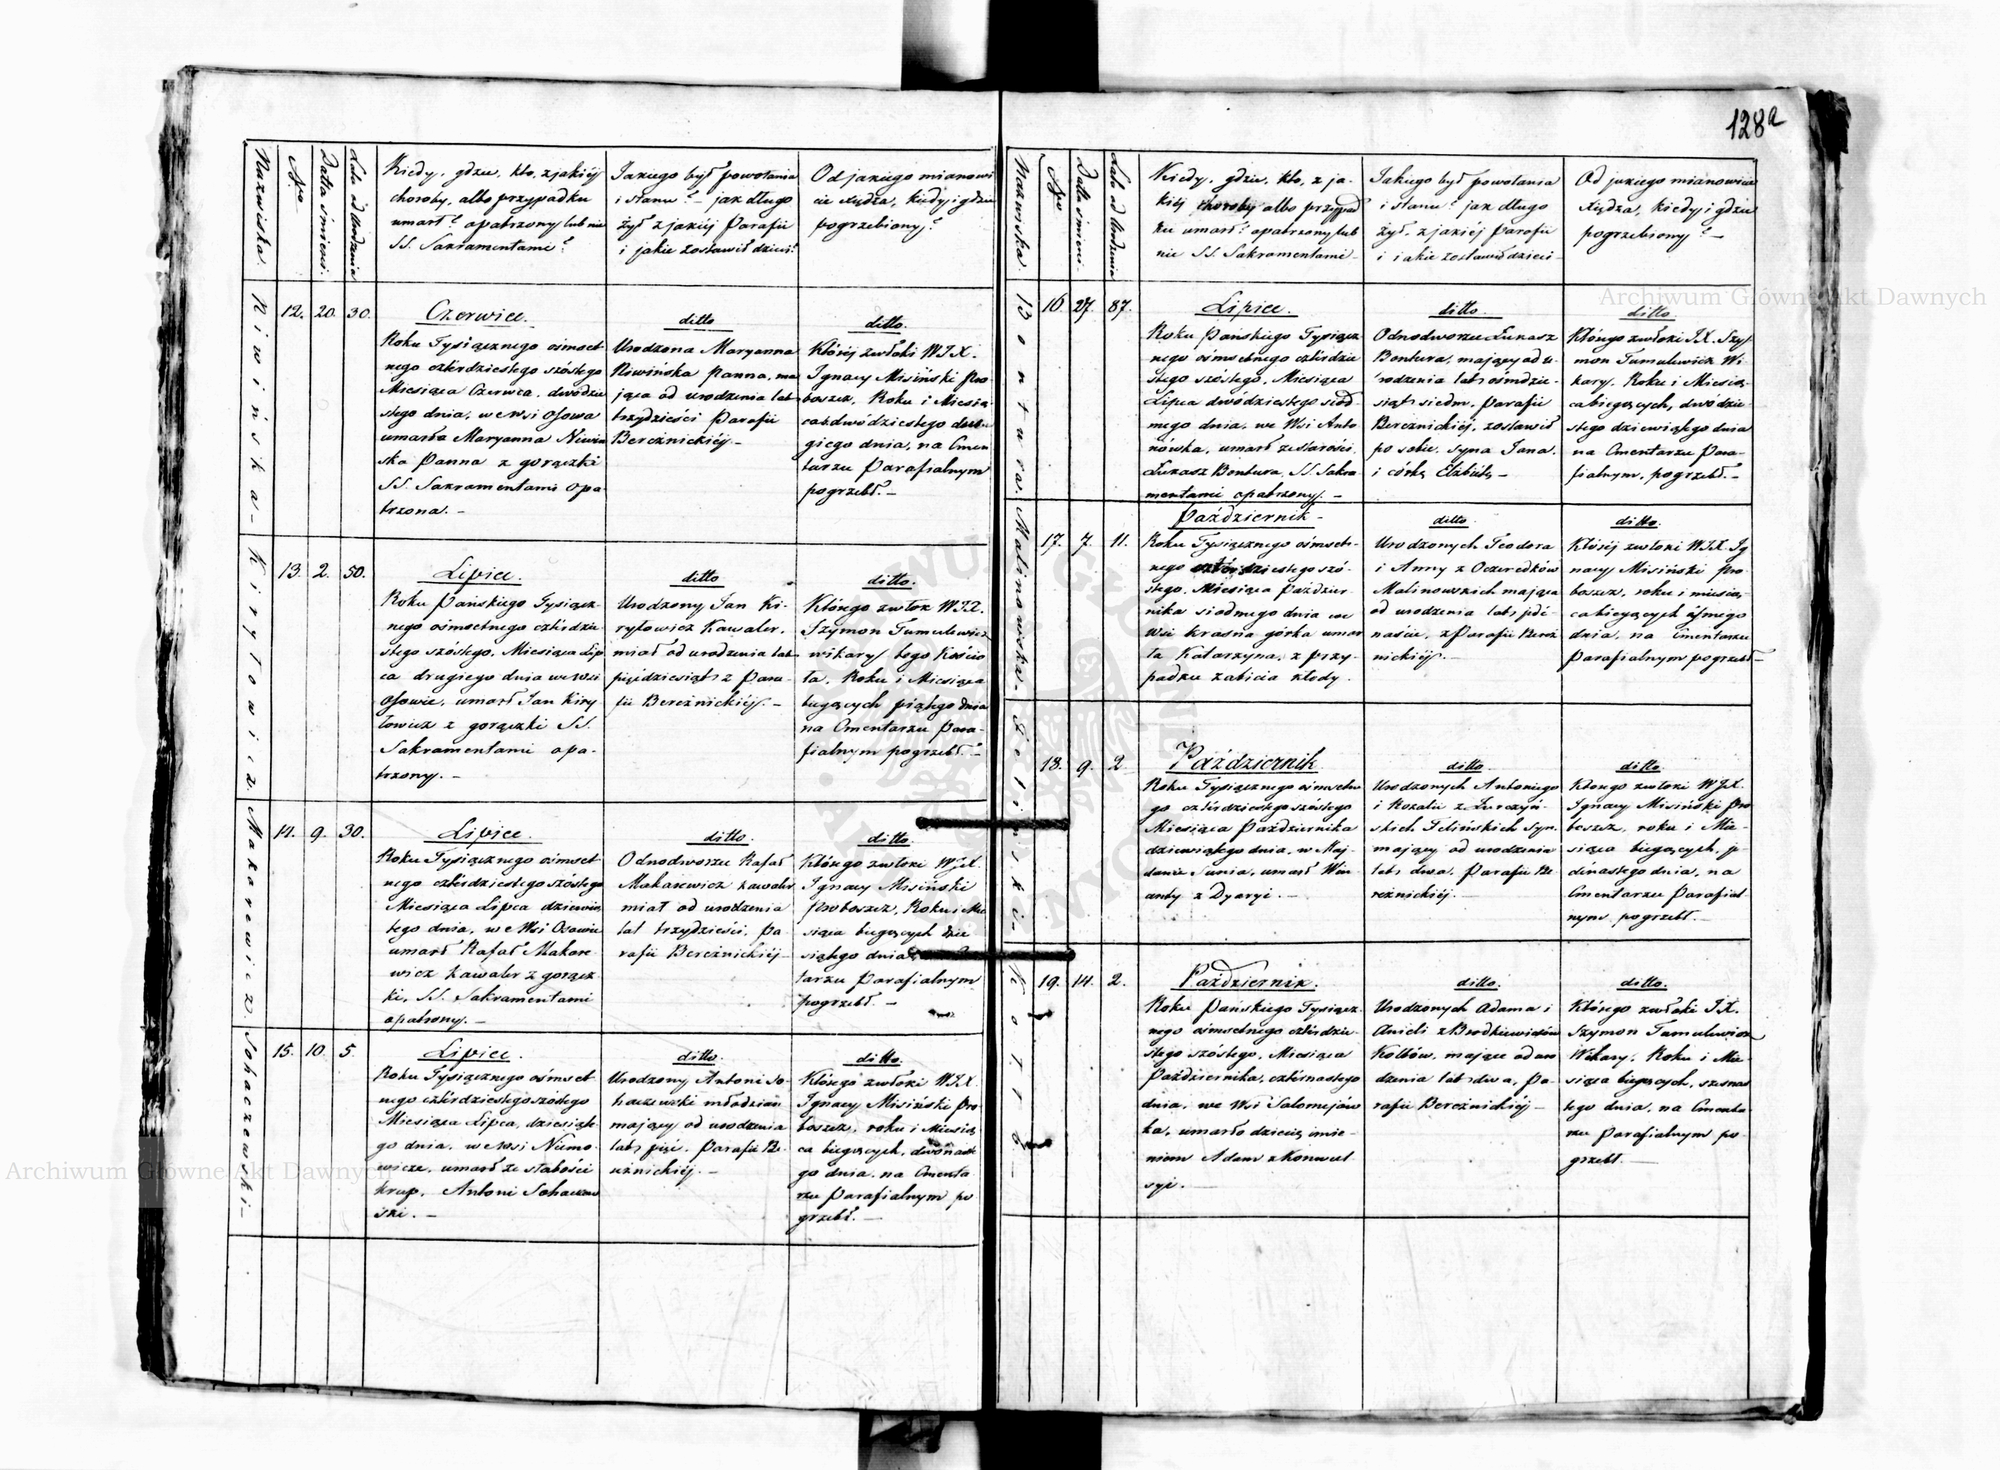 128a
Nazwiska.
Nro
Data śmierci.
Lata od Urodzenia
Kiedy, gdzie, kto, z jakiéj
choroby, albo przypadku
umarł? opatrzony lub nie
SS. Sakramentami?
Jakiego był powołania
i stanu? – jak długo
żył z jakiéj Parafii
i jakie zostawił dzieci?
Od jakiego mianowi
cie Xiędza, kiedy i gdzie
pogrzebiony?
Niwińska –
12. 20. 30.
Czerwiec.
Roku Tysiącznego ośmset
nego czterdziestego szóstego
Miesiąca Czerwca, dwódzie
stego dnia, we wsi Osowa
umarła Maryanna Niwiń
ska Panna z gorączki
SS. Sakramentami opa
trzona. –
ditto
Urodzona Maryanna
Niwińska Panna, ma
jąca od urodzenia lat
trzydzieści Parafii
Bereżnickiéj –
ditto.
Któréj zwłoki W.J.X.
Ignacy Misiński Pro
boszcz, Roku i Miesią
ca dwódziestego dru
giego dnia, na Cmen
tarzu Parafialnym
pogrzebł. –
Kiryłowicz.
13. 2. 50.
Lipiec.
Roku Pańskiego Tysiącz
nego ośmsetnego czterdzie
stego szóstego, Miesiąca Lip
ca drugiego dnia we wsi
Osowie, umarł Jan Kiry
łowicz z gorączki SS.
Sakramentami opa-
trzony. –
ditto
Urodzony Jan Ki-
ryłowicz Kawaler,
miał od urodzenia lat
pięćdziesiąt z Para-
fii Bereżnickiéj. –
ditto.
Którego zwłok W.J.X.
Szymon Tumulewicz
wikary tego Kościo
ła, Roku i Miesiąca
bieżących piątego dnia
na Cmentarzu Para-
fialnym pogrzebł. –
Makarewicz.
14. 9. 30.
Lipiec.
Roku Tysiącznego ośmset
nego czterdziestego szóstego
Miesiąca Lipca dziewią
tego dnia, we Wsi Osowie
umarł Rafał Makare
wicz Kawaler z gorącz
ki, SS. Sakramentami
opatrzony. –
ditto
Odnodworzec Rafał
Makarewicz kawaler
miał od urodzenia
lat trzydzieści, Pa-
rafii Bereżnickiéj –
ditto.
Którego zwłoki W.J.X.
Ignacy Misiński
Proboszcz, Roku i Mie
siąca bieżących dzie
siątego dnia
tarzu Parafialnym
pogrzebł. –
Sohaczewski –
15. 10. 5.
Lipiec.
Roku Tysiącznego ośmset
nego czterdziestego szóstego
Miesiąca Lipca, dziesiąte
go dnia, we wsi Niemo-
wicze, umarł ze słabości
krup, Antoni Sohaczew
ski. –
ditto.
Urodzony Antoni So-
haczewski młodzian
mający od urodzenia
lat pięć, Parafii Be-
reżnickiéj. –
ditto.
Którego zwłoki W.J.X.
Ignacy Misiński Pro-
boszcz, roku i Miesią
ca bieżących, dwónaste
go dnia, na Cmenta
rzu Parafialnym po
grzebł. –
Nazwiska
Nro
Data śmierci.
Lata od Urodzenia
Kiedy, gdzie, kto, z ja-
kiéj choroby albo przypad
ku umarł? opatrzony lub
nie SS. Sakramentami –
Jakiego był powołania
i stanu? jak długo
żył, z jakiéj Parafii
i jakie zostawił dzieci –
Od jakiego mianowicie
Xiędza, kiedy i gdzie
pogrzebiony? –
Bontura.
16. 27. 87.
Lipiec.
Roku Pańskiego Tysiącz
nego ośmsetnego czterdzie
stego szóstego, Miesiąca
Lipca dwódziestego siód
mego dnia, we Wsi Anto
nówka, umarł ze starości
Łukasz Bontura, SS. Sakra
mentami opatrzony. –
ditto.
Odnodworzec Łukasz
Bontura, mający od u-
rodzenia lat ośmdzie-
siąt siedm, Parafii
Bereżnickiéj, zostawił
po sobie, syna Jana,
i córkę Elżbietę –
ditto.
Którego zwłoki J.X. Szy
mon Tumulewicz Wi-
kary, Roku i Miesią-
ca bieżących, dwódzie-
stego dziewiątego dnia
na Cmentarzu Para-
fialnym, pogrzebł. –
Malinowska.
17. 7. 11.
Październik –
Roku Tysiącznego ośmset-
nego czterdziestego szó-
stego, Miesiąca Paździer-
nika siodmego dnia we
Wsi krasna górka umar
ła Katarzyna, z przy-
padku zabicia kłody.
ditto
Urodzonych Teodora
i Anny z Oczeredków
Malinowskich mająca
od urodzenia lat jede-
naście, z Parafii Bereż
nickiéj. –
ditto.
Któréj zwłoki W.J.X. Ig
nacy Misiński Pro-
boszcz, roku i miesią-
ca bieżących ósmego
dnia, na Cmentarzu
Parafialnym pogrzebł –
Teliński –
18. 9. 2.
Październik
Roku Tysiącznego ośmsetne
go czterdziestego szóstego
Miesiąca Października
dziewiątego dnia, w Maj-
danie Sunia, umarł Win
centy z Dyaryi. –
ditto.
Urodzonych Antoniego
i Rozalii z Żurczyń-
skich Telińskich syn,
mający od urodzenia
lat dwa, Parafii Be-
reżnickiéj. –
ditto.
Którego zwłoki W.J.X.
Ignacy Misiński Pro
boszcz, roku i Mie-
siąca bieżących, je-
dénastego dnia, na
Cmentarzu Parafial-
nym pogrzebł. –
19. 14. 2.
Październik.
Roku Pańskiego Tysiącz
nego ośmsetnego czterdzie-
stego szóstego, Miesiąca
Października, czternastego
dnia, we Wsi Salomejów
ka, umarło dziecię imie-
niem Adam z Konwul
syi. –
ditto.
Urodzonych Adama i
Anieli z Brodkiewiczów
Kottów, mające od uro
dzenia lat dwa, Pa-
rafii Bereżnickiéj –
ditto.
Którego zwłoki J.X.
Szymon Tumulewicz
Wikary, Roku i Mie-
siąca bieżących, szesnas
tego dnia, na Cmenta-
rzu Parafialnym po-
grzebł. –
Archiwum Główne Akt Dawnych
Archiwum Główne Akt Dawnych